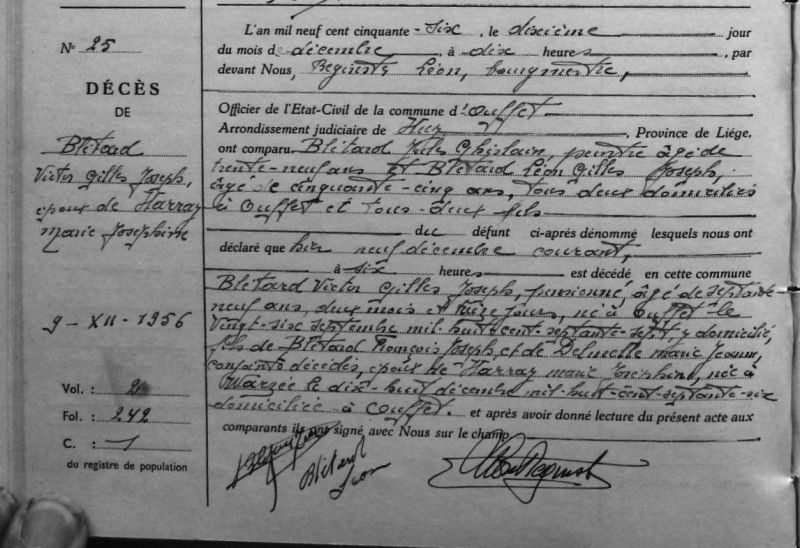 N° 25
DÉCÈS
DE
Blétard
Victor Gilles Joseph,
époux de Harray
Marie Josephine
9 - XII - 1956
Vol. : 2
Fol. : 242
C. : 1
du registre de population
L'an mil neuf cent cinquante-six, le dixième jour
du mois de décembre, à dix heures, par
devant Nous, Léon, bourgmestre,
Officier de l'Etat-Civil de la commune d'Ouffet
Arrondissement judiciaire de Huy, Province de Liége,
ont comparu Blétard Jules Ghislain, peintre âgé de
trente-neuf ans et Blétard Léon Gilles Joseph,
âgé de cinquante-cinq ans, tous deux domiciliés
à Ouffet et tous-deux fils
du défunt ci-après dénommé lesquels nous ont
déclaré que hier neuf décembre courant,
à six heures est décédé en cette commune
Blétard Victor Gilles Joseph, pensionné, âgé de septante-
neuf ans, deux mois et treize jours, né à Ouffet le
vingt-six septembre mil huit cent septante-sept, y domicilié,
fils de Blétard François Joseph, et de Marie Jeanne,
conjoints décédés, époux de Harray Marie Joséphine, née à
Warzée le dix-huit décembre mil-huit-cent-septante-six
domiciliée à Ouffet. et après avoir donné lecture du présent acte aux
comparants ils ont signé avec Nous sur le champ
Blétard
Léon